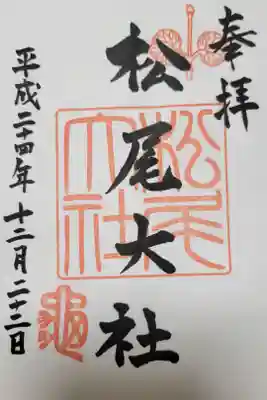 奉拝
松尾大社
松尾大社
平成二十四年 十二月 二十二日